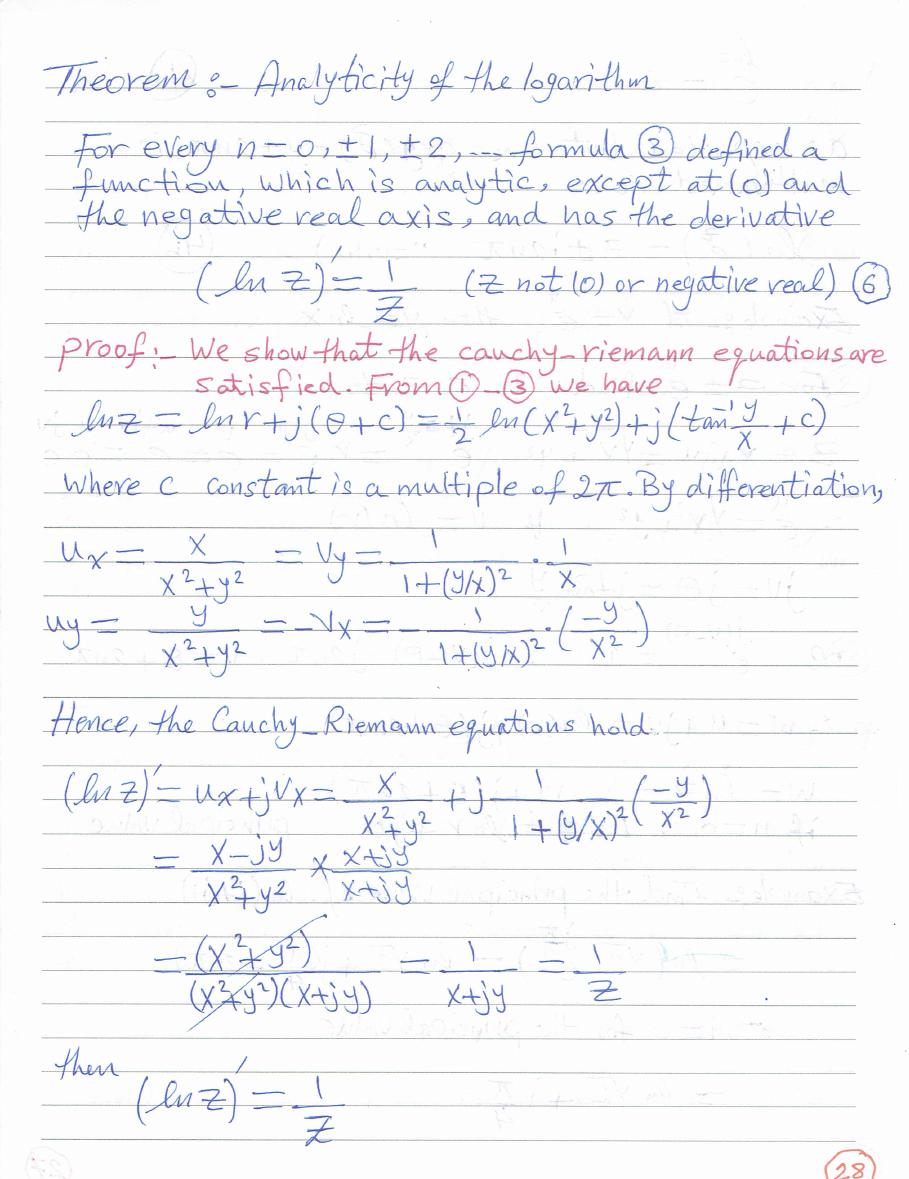 Theorem :- Analyticity of the logarithm
For every n = 0, ±1, ±2, .... formula ③ defined a
function, which is analytic, except at (0) and
the negative real axis, and has the derivative
(ln z)' = 1/z (z not (0) or negative real) ⑥
Proof :- We show that the cauchy-riemann equations are
satisfied. From ① - ③ we have
ln z = ln r + j(θ + c) = 1/2 ln(x² + y²) + j(tan⁻¹ y/x + c)
where c constant is a multiple of 2π. By differentiation,
ux = x/(x² + y²) = Vy = 1/(1 + (y/x)²) · 1/x
uy = y/(x² + y²) = -Vx = - 1/(1 + (y/x)²) · (-y/x²)
Hence, the Cauchy-Riemann equations hold
(ln z)' = ux + jVx = x/(x² + y²) + j 1/(1 + (y/x)²) (-y/x²)
= (x - jy)/(x² + y²) × (x + jy)/(x + jy)
= (x² + y²)/((x² + y²)(x + jy)) = 1/(x + jy) = 1/z
then
(ln z)' = 1/z
28